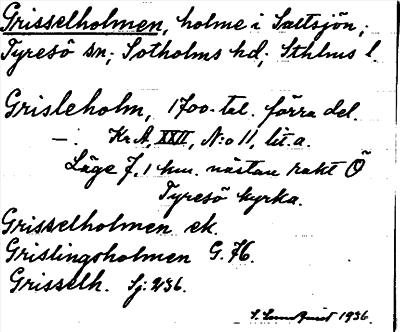 Grisselholmen, holme i Saltsjön;
Tyresö sn; Sotholms hd; Sthlms l.
Grisleholm, 1700-tal. förra del.
—. Kr A, XXII, N:o 11, lit. a.
Läge 7,1 km. nästan rakt Ö
Tyresö kyrka.
Grisselholmen ek.
Grislingsholmen G. 76.
Grisselh. Sj: 236.
S. Sundquist 1936.